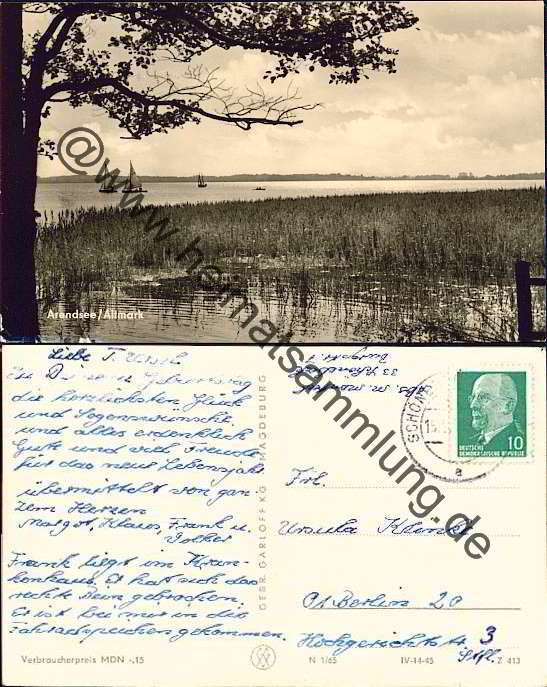 Arendsee/Altmark
@www.heimatsammlung.de
Liebe T. Ursel
Zu Deinem Geburtstag
die herzlichsten Glück
und Segenswünsche.
und alles erdenklich
Gute und viel Freude
für das neue Lebensjahr
übermittelt von gan-
zem Herzen
Margot, Klaus, Frank u.
Volker
Frank liegt im Kran-
kenhaus. Er hat sich das
rechte Bein gebrochen.
Er ist bei mir in die
Fahrradspeichen gekommen.
Verbraucherpreis MDN -,15
GEBR. GARLOFF KG MAGDEBURG
Abs. M.
33 Schönebeck
SCHÖN
10
DEUTSCHE
DEMOKRATISCHE REPUBLIK
a
Frl.
Ursula
Berlin 20
Hochgerichtstr. 3
N 1/65
IV-14-45
Z 413